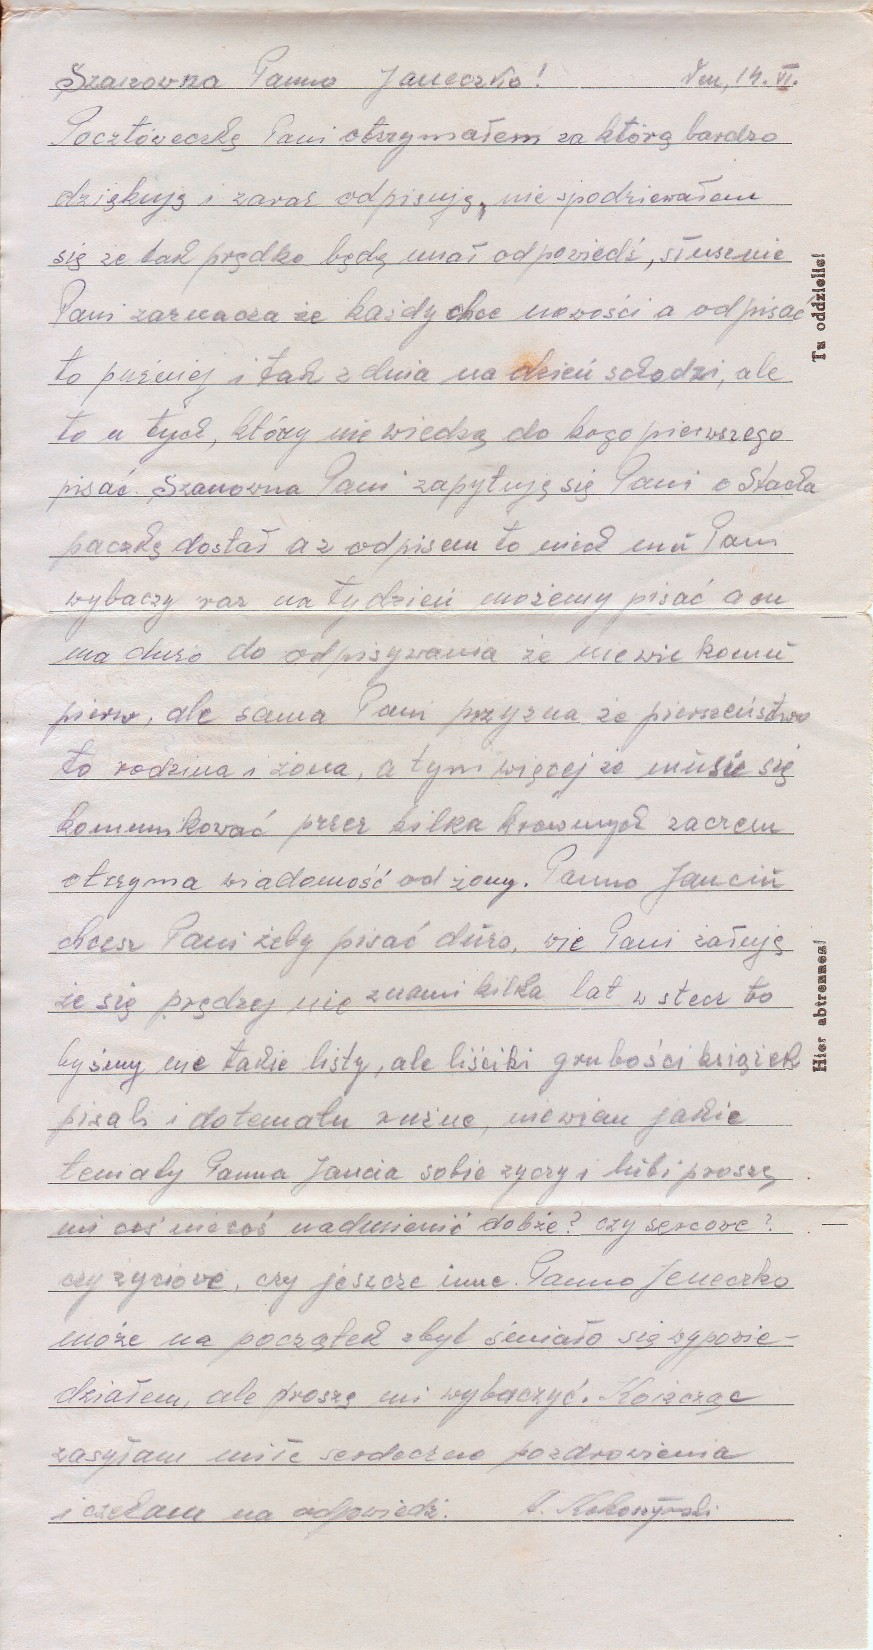 Szanowna Panno Janeczko! Dn, 14. VI.
Pocztóweczkę Pani otrzymałem za którą bardzo
dziękuję i zaraz odpisuję, nie spodziewałem
się że tak prędko będę miał odpowiedź, słusznie
Pani zaznacza że każdy chce nowości a odpisać
to puźniej i tak z dnia na dzień schodzi, ale
to u tych, którzy nie wiedzą do kogo pierwszego
pisać. Szanowna Pani zapytuję się Pani o Stacha
paczkę dostał a z odpisem to niech mu Pani
wybaczy raz na tydzień możemy pisać a on
ma dużo do odpisywania że nie wie komu
pierw, ale sama Pani przyzna że pierszeństwo
to rodzina i żona, a tym więcej że musie się
komunikować przez kilka krewnych zaczem
otrzyma wiadomość od żony. Panno Janciu
chcesz Pani żeby pisać dużo, wie Pani żałuję
że się prędzej nie znami kilka lat w stecz to
byśmy nie takie listy, ale liściki grubości książek
pisali i do tematu rużne, nie wiem jakie
tematy Panna Jancia sobie życzy i lubi proszę
mi coś niecoś nadmienić dobże? czy sercowe?
czy życiowe, czy jeszcze inne. Panno Jeneczko
może na początek zbyt śmiało się wypowie-
działem, ale proszę mi wybaczyć. Koiżcząc
zasyłam miłe serdeczne pozdrowienia
i czekam na odpowiedź.
Tu oddzielić!
Hier abtrennen!